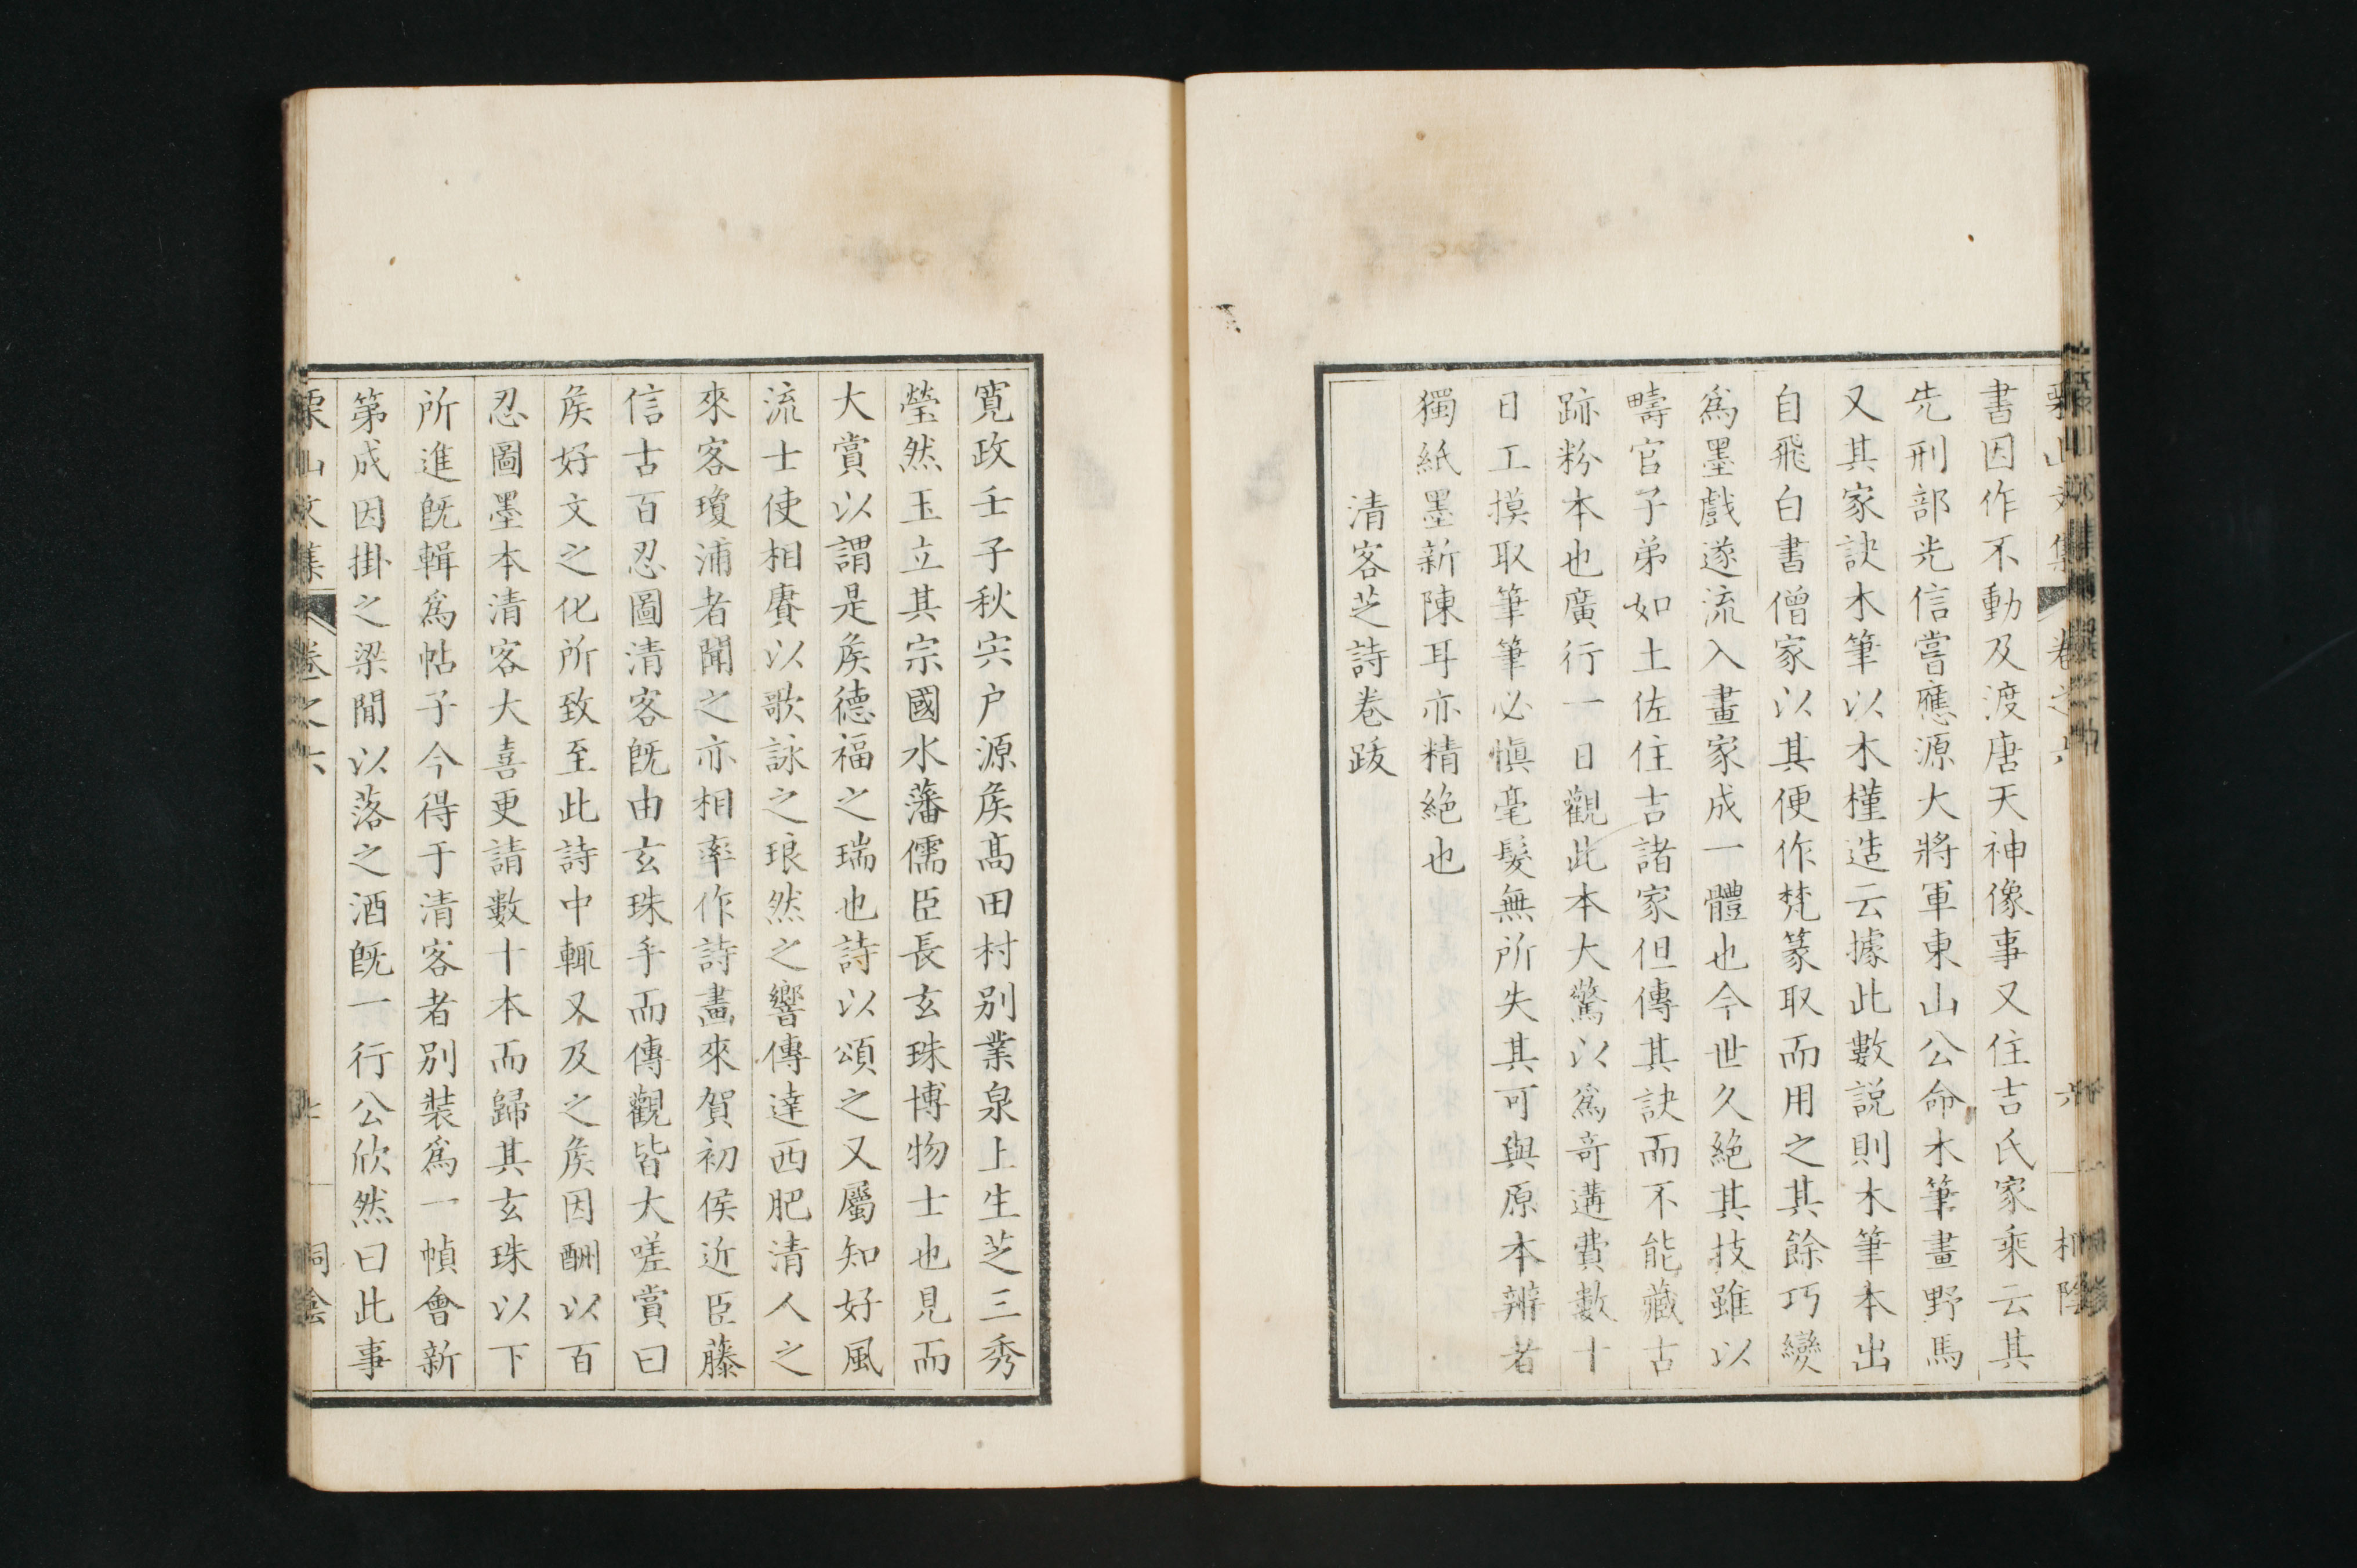 書因作不動及渡唐天神像事又住吉氏家乘云其
先刑部光信嘗應源大將軍東山公命木筆畫野馬
又其家訣木筆以木槿造云據此數説則木筆本出
自飛白書僧家以其便作梵篆取而用之其餘巧變
爲墨戲遂流入畫家成一體也今世久絶其技雖以
疇官子弟如土佐住吉諸家但傳其訣而不能藏古
跡粉本也廣行一日觀此本大驚以爲奇遘費數十
日工摸取筆筆必愼毫髮無所失其可與原本辨者
獨紙墨新陳耳亦精絶也
清客芝詩卷跋
寛政壬子秋宍户源矦髙田村别業泉上生芝三秀
瑩然玉立其宗國水藩儒臣長玄珠博物士也見而
大賞以謂是矦德福之瑞也詩以頌之又屬知好風
流士使相賡以歌詠之琅然之響傳達西肥清人之
來客瓊浦者聞之亦相率作詩畫來賀初侯近臣藤
信古百忍圖清客旣由玄珠手而傳觀皆大嗟賞曰
矦好文之化所致至此詩中輒又及之矦因酬以百
忍圖墨本清客大喜更請數十本而歸其玄珠以下
所進旣輯爲帖子今得于清客者别裝爲一幀會新
第成因掛之梁間以落之酒旣一行公欣然曰此事
栗山文集 卷之六